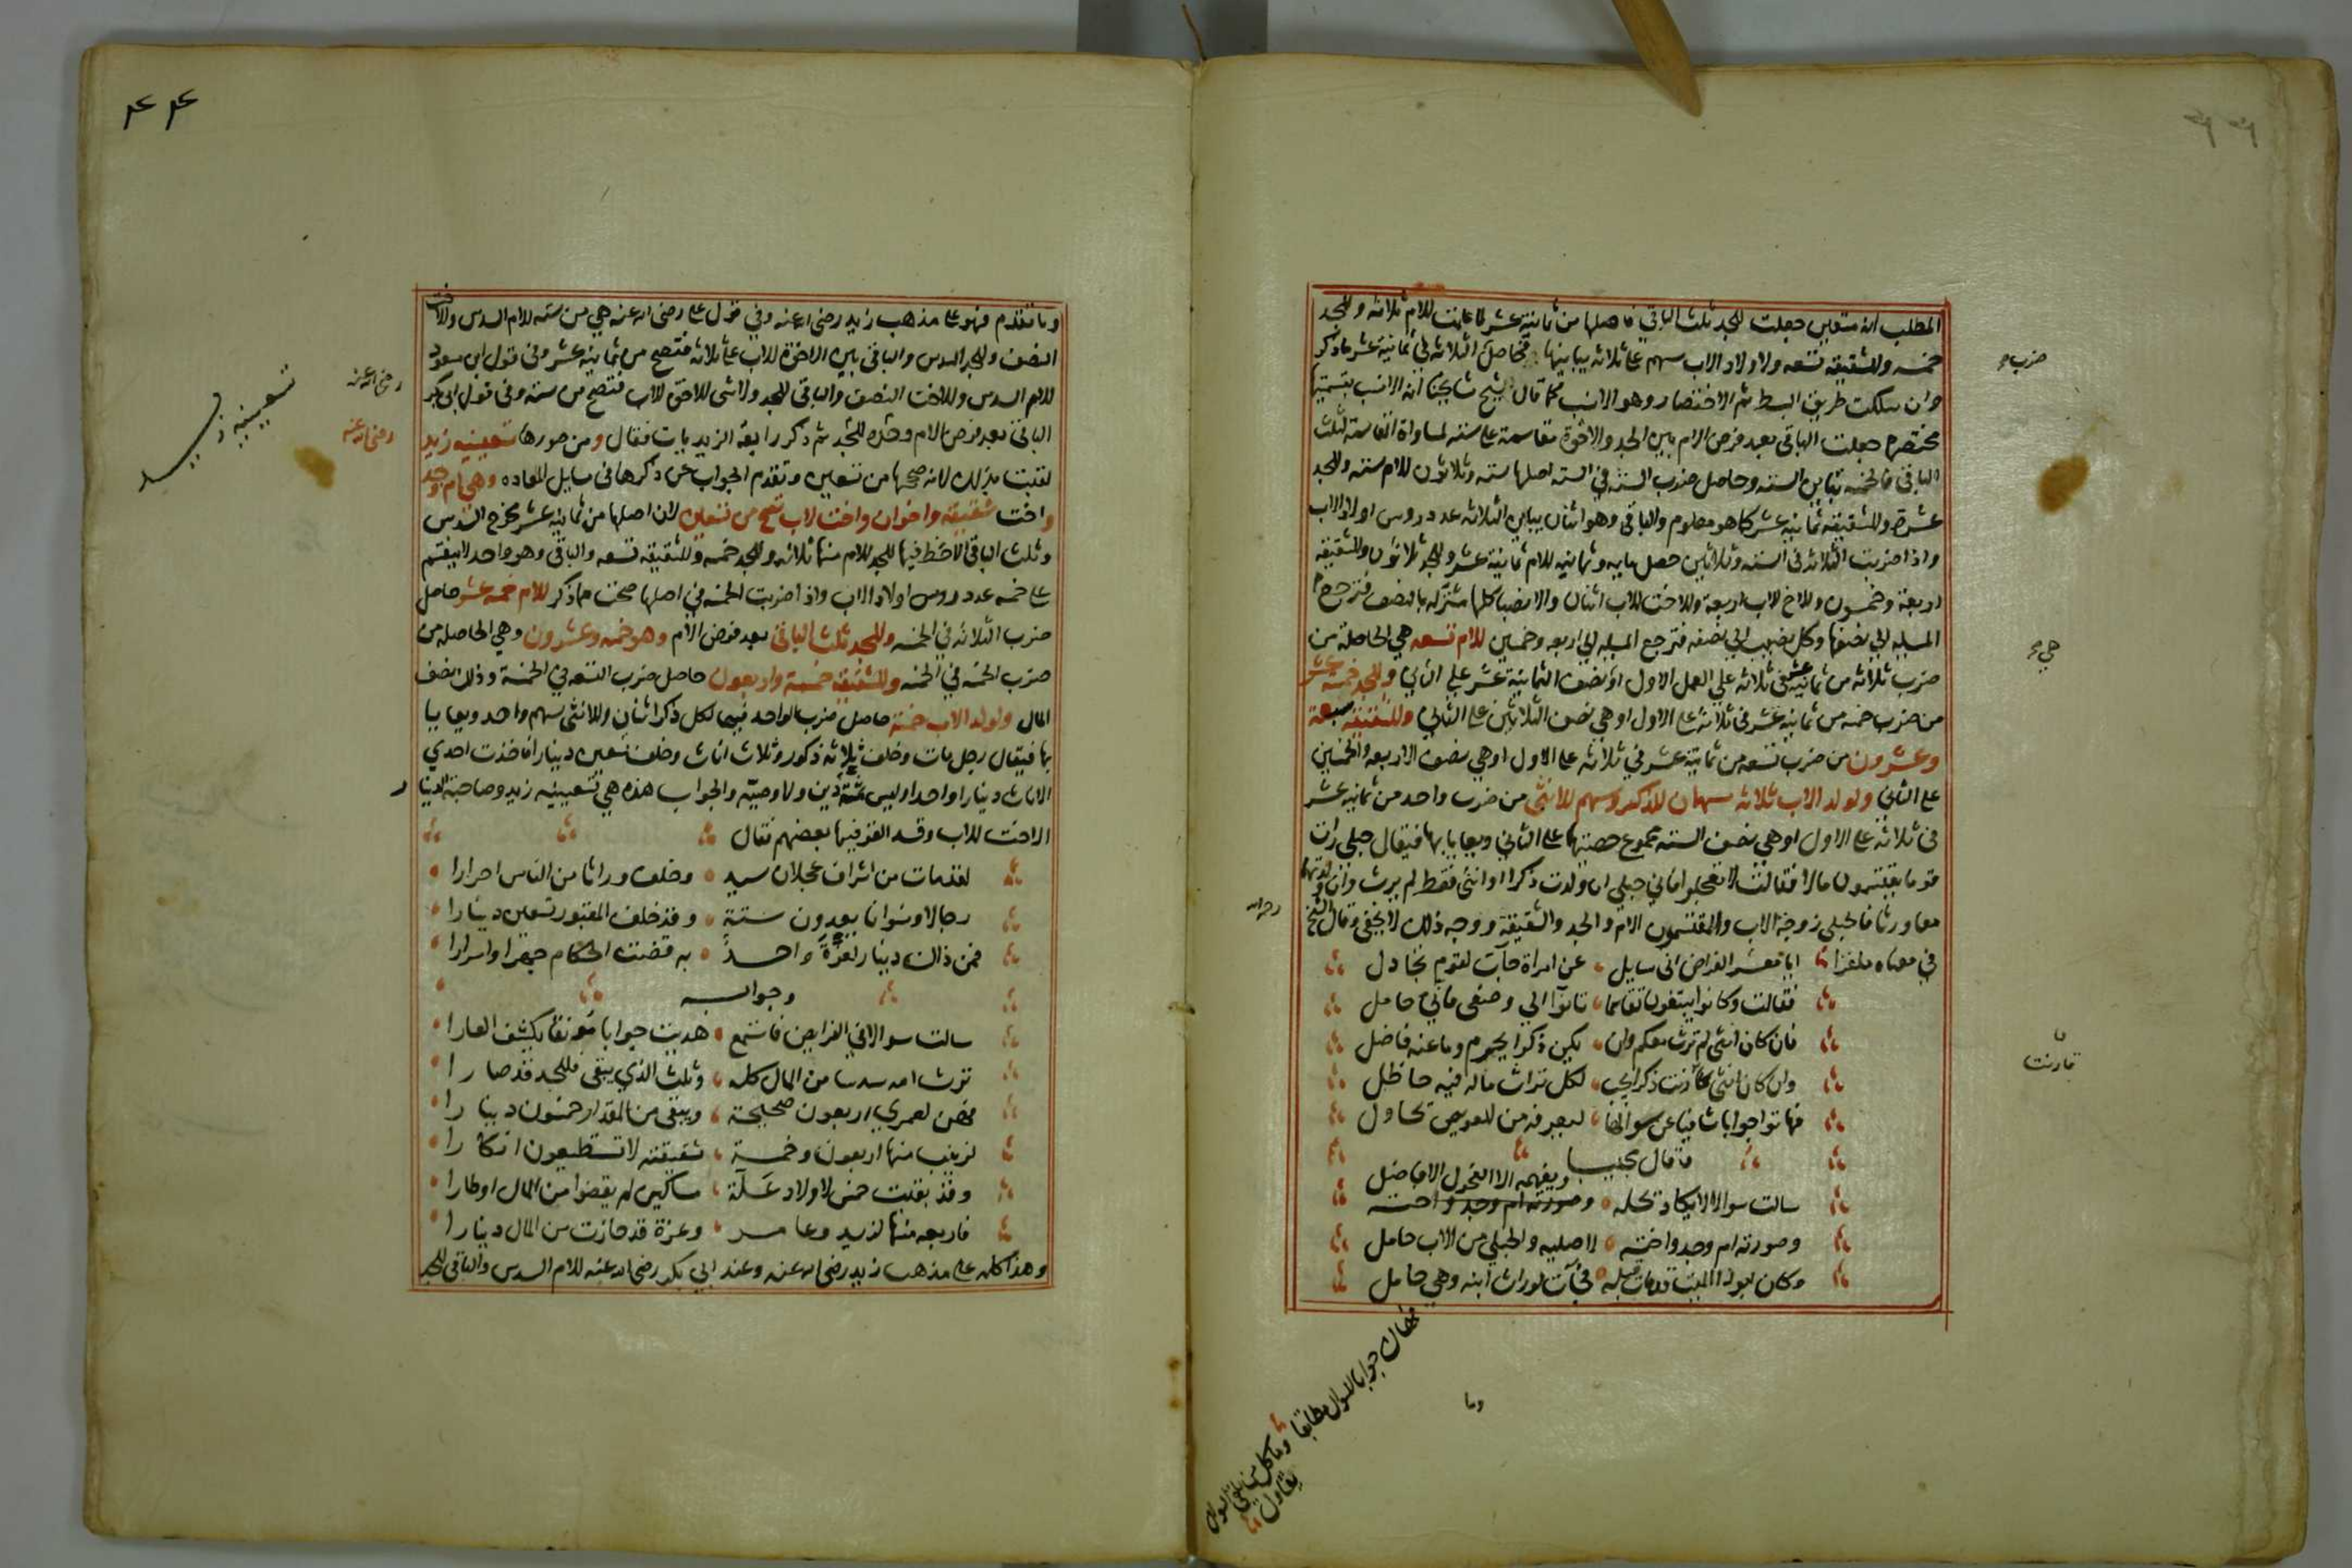 المطلب انه متعين جعلت للجد ثلث الباقي فاصلها من ثمانية عشر كما علمت للام ثلاثه وللجد
خمسه وللشقيقه تسعه ولاولاد الاب سهم على ثلاثه يباينها فحاصل الثلاثه في ثمانية عشر ماذكر
وان سلكت طريق البسط ثم الاختصار وهو الانسب كما قال شيخ مشايخنا انه الانسب بتسميتها
مختصرة جعلت الباقي بعد فرض الام بين الجد والاخوة مقاسمة على سته لمساواة المقاسمة لثلث
الباقي فالخمسه تباين الستة وحاصل ضرب الستة في الستة اصلها ستة وثلاثون للام ستة وللجد
عشرة وللشقيقه ثمانية عشر كما هو معلوم والباقي وهو اثنان يباين الثلاثه عدد روس اولاد الاب
واذا ضربت الثلاثه في الستة وثلاثين حصل مايه وثمانيه للام ثمانية عشر وللجد ثلاثون وللشقيقه
اربعة وخمسون وللاخ للاب اربعة وللاخت للاب اثنان والانصبا كلها مشتركه بالنصف فترجع
المسيله الى نصفها وكل نصيب الي نصفه فترجع المسيله الي اربعه وخمسين للام تسعه هي الحاصلة من
ضرب ثلاثه من ثمانية عشر في ثلاثه علي العمل الاول او نصف الثمانية عشر علي الثاني وللجد خمسة عشر
من ضرب خمسه من ثمانية عشر في ثلاثه على الاول او هي نصف الثلاثين على الثاني وللشقيقه سبعة
وعشرون من ضرب تسعه من ثمانية عشر في ثلاثه على الاول او هي نصف الاربعه والخمسين
على الثاني ولولد الاب ثلاثه سهمان للذكر وسهم للانثى من ضرب واحد من ثمانية عشر
في ثلاثه على الاول او هي نصف الستة مجموع حصتيهما على الثاني ويعايا بها فيقال حبلى رات
قوما يقتسمون مالا فقالت لا تعجلوا فاني حبلي ان ولدت ذكرا او انثى فقط لم يرث وان ولدتهما
معا ورثا فالحبلي زوجة الاب والمقتسمون الام والجد والشقيقة ووجه ذلك لا يخفى وقال الشيخ
في معناه ملغزا ايا معشر الفراض اني سايل عن امراة جآت لقوم تجادل
فقالت وكانوا يبتغون تقاسما تانوا الي وضعي فاني حامل
فان كان انثى لم ترث معكم وان يكن ذكرا يحرم وما عنه فاضل
وان كان انثى قارنت ذكرا يجب لكل تراث ماله فيه حاظل
فهاتوا جوابا شافيا عن سوالها ليعرفه من للعويص تحاول
فقال مجيبا
سالت سوالا لا يكاد تحله ويفهمه الا الفحول الافاضل
وصورته ام وجد واخته
وصورته ام وجد واخته لاصليه والحبلي من الاب حامل
وكان ابو ذا الميت قد مات قبله فجآت لوراث ابنه وهي حامل
فهاك جوابا للسوال مطابقا وما كل من يلقى السوال
يقاول
وما
ضرب
هي
رحمه الله
قارنت
٤٤
وما تقدم فهو على مذهب زيد رضي الله عنه وفي قول علي رضي الله عنه هي من سته للام السدس وللاخت
النصف وللجد السدس والباقي بين الاخوة للاب على ثلاثه فتصح من ثمانية عشر وفي قول ابن مسعود
للام السدس وللاخت النصف والباقي للجد ولا شي للاخوة للاب فتصح من سته وفي قول ابي بكر
الباقي بعد فرض الام وحده للجد ثم ذكر رابعة الزيديات فقال ومن صورها تسعينيه زيد
لقبت بذلك لانه صححها من تسعين وتقدم الجواب عن ذكرها في مسايل المعاده وهي ام وجد
واخت شقيقه واخوان واخت لاب تصح من تسعين لان اصلها من ثمانية عشر مخرج السدس
وثلث الباقي الاحظ فيها للجد للام منها ثلاثه وللجد خمسه وللشقيقه تسعه والباقي وهو واحد لا ينقسم
على خمسه عدد روس اولاد الاب واذا ضربت الخمسة في اصلها صحت مما ذكر للام خمسه عشر حاصل
ضرب الثلاثه في الخمسه وللجد ثلث الباقي بعد فرض الام وهو خمسه وعشرون وهي الحاصله من
ضرب الخمسه في الخمسه وللشقيقه خمسة واربعون حاصل ضرب التسعه في الخمسة وذلك نصف
المال ولولد الاب خمسة حاصل ضرب الواحد فيها لكل ذكر اثنان وللانثى سهم واحد ويعايا
بها فيقال رجل مات وخلف ثلاثه ذكور وثلاث اناث وخلف تسعين دينارا فاخذت احدي
الاناث دينارا واحدا وليس ثمة دين ولا وصية والجواب هذه هي تسعينيه زيد وصاحبة الدينار
الاخت للاب وقد الغز فيها بعضهم فقال
لقد مات من اشراف عجلان سيد وخلف وراثا من الناس احرارا
رجالا ونسوانا يعدون ستة وقد خلف المقبور تسعين دينارا
فمن ذاك دينار لعزة واحد به قضت الحكام جهرا واسرارا
وجوابه
سالت سوالا في الفرايض فاستمع هديت جوابا مونقا يكشف العارا
ترث امه سدسا من المال كله وثلث الذي يبقى فللجد قد صارا
فهن لعمري اربعون صحيحة ويبقى من المقدار خمسون دينارا
لزينب منها اربعون وخمسة شقيقته لا تستطيعون انكارا
وقد بقيت خمس لاولاد علة مساكين لم يقضوا من المال اوطارا
فاربعه منها لزيد وعامر وعزة قد حازت من المال دينارا
وهذا كله على مذهب زيد رضي الله عنه وعند ابي بكر رضي الله عنه للام السدس والباقي للجد
رضي الله عنه
رضي الله عنه
تسعينيه زيد